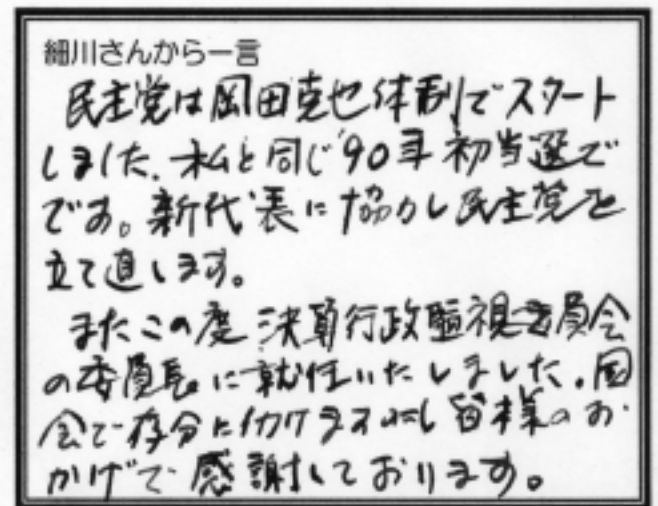 細川さんから一言
民主党は岡田克也体制でスタート
しました。私と同じ'90年初当選で
です。新代表に協力し民主党を
立て直します。
またこの度決算行政監視委員会
の委員長に就任いたしました。国
会で存分に働けますのも皆様のお
かげで感謝しております。